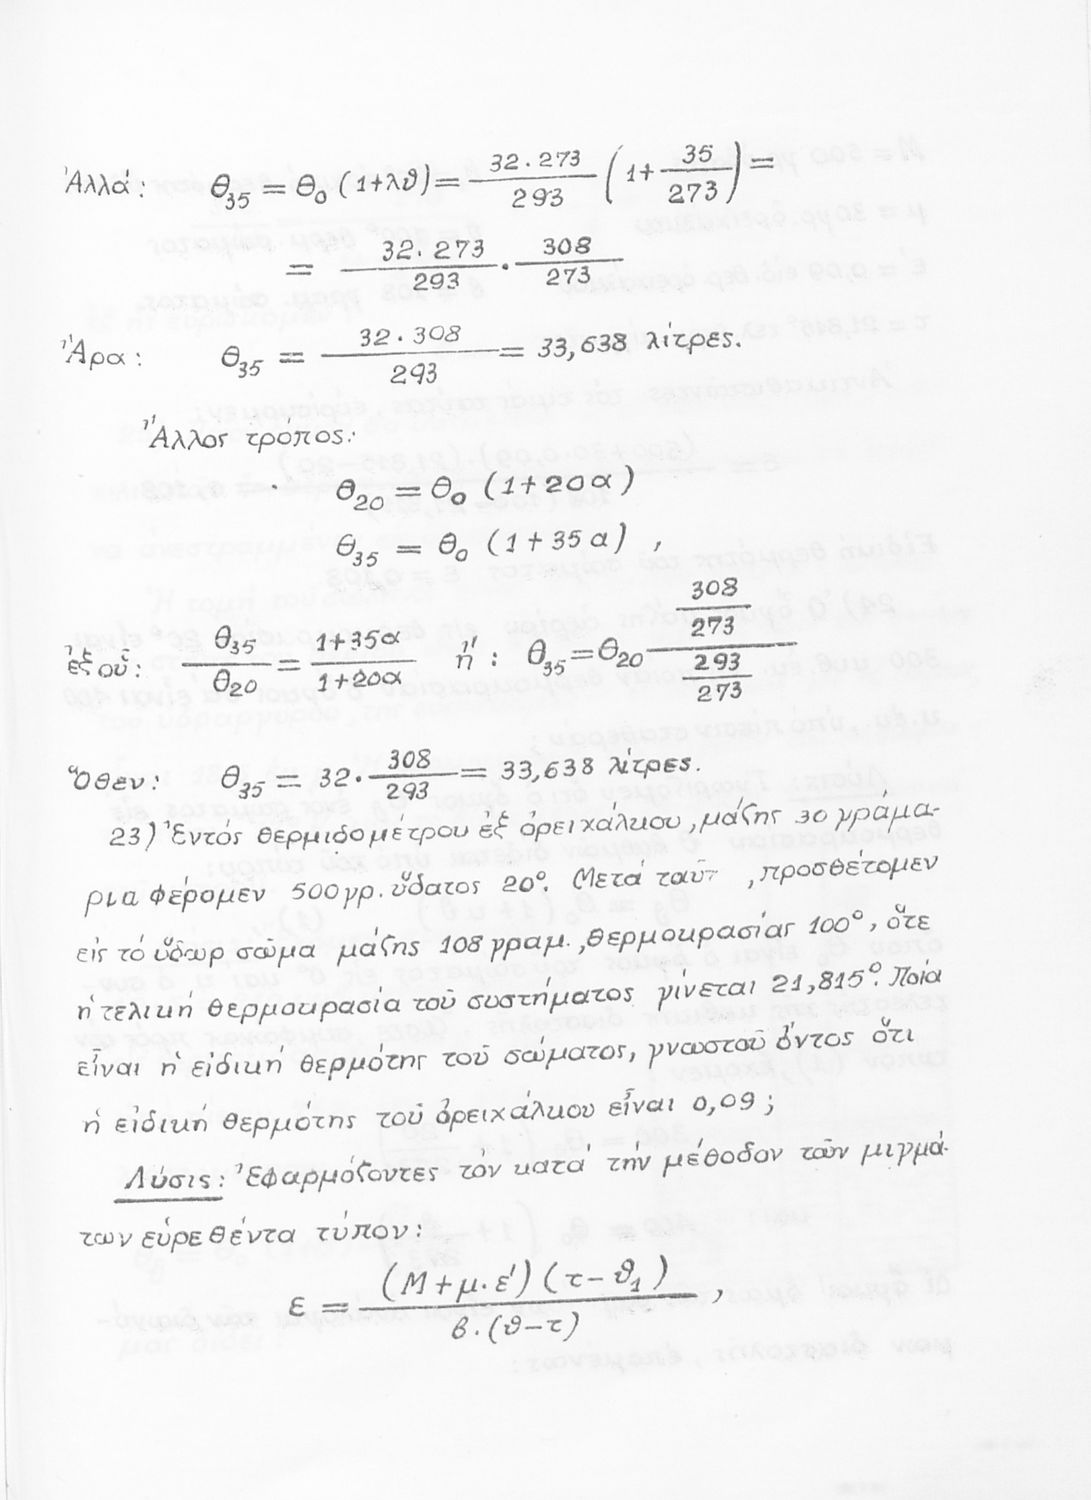 Ἀλλά: Θ₃₅ = Θ₀ (1+λϑ) = 32.273/293 (1+ 35/273) =
= 32.273/293 . 308/273
Ἄρα: Θ₃₅ = 32.308/293 = 33,638 λίτρες.
Ἄλλος τρόπος:
Θ₂₀ = Θ₀ (1+20α)
Θ₃₅ = Θ₀ (1+35α) ,
ἐξ οὗ: Θ₃₅/Θ₂₀ = 1+35α/1+20α ἤ: Θ₃₅ = Θ₂₀ (308/273)/(293/273)
Ὅθεν: Θ₃₅ = 32. 308/293 = 33,638 λίτρες.
23) Ἐντός θερμιδομέτρου ἐξ ὀρειχάλκου, μάζης 30 γράμα-
ρια φέρομεν 500γρ. ὕδατος 20°. Μετά , προσθέτομεν
εἰς τό ὕδωρ σῶμα μάζης 108 γραμ., θερμοκρασίας 100°, ὅτε
ἡ τελική θερμοκρασία τοῦ συστήματος γίνεται 21,815°. Ποία
εἶναι ἡ εἰδική θερμότης τοῦ σώματος, γνωστοῦ ὄντος ὅτι
ἡ εἰδική θερμότης τοῦ ὀρειχάλκου εἶναι 0,09 ;
Λύσις: Ἐφαρμόζοντες τόν κατά τήν μέθοδον τῶν μιγμά-
των εὑρεθέντα τύπον:
ε = (Μ+μ.ε') (τ-ϑ₁)/β.(ϑ-τ) ,